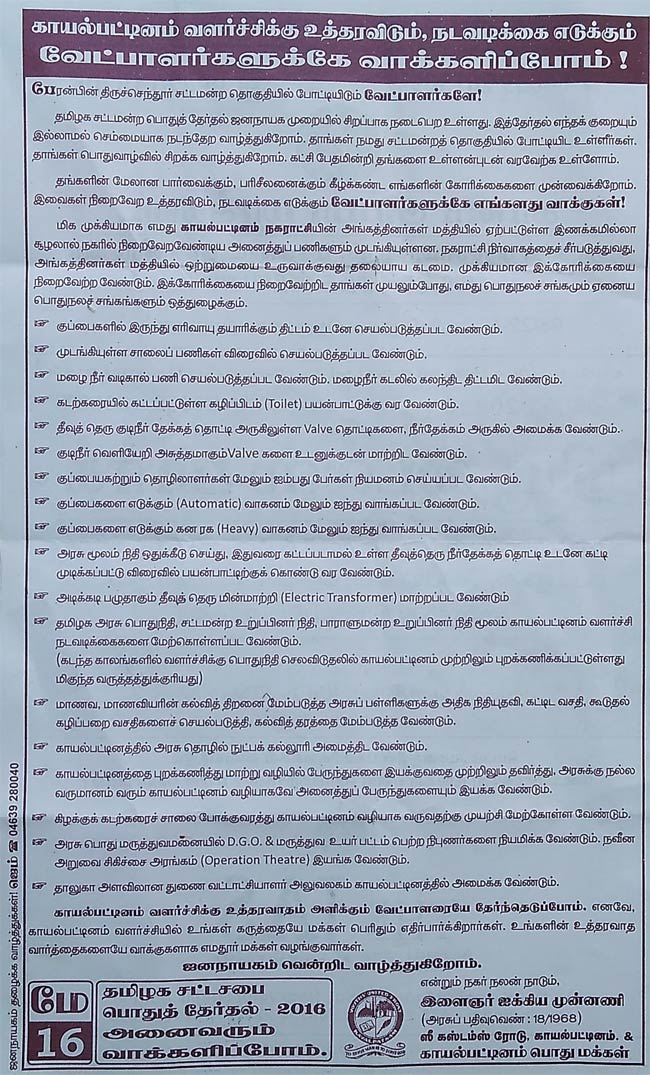 காயல்பட்டினம் வளர்ச்சிக்கு உத்தரவிடும், நடவடிக்கை எடுக்கும்
வேட்பாளர்களுக்கே வாக்களிப்போம் !
பேரன்பின் திருச்செந்தூர் சட்டமன்ற தொகுதியில் போட்டியிடும் வேட்பாளர்களே!
தமிழக சட்டமன்ற பொதுத் தேர்தல் ஜனநாயக முறையில் சிறப்பாக நடைபெற உள்ளது. இத்தேர்தல் எந்தக் குறையும்
இல்லாமல் செம்மையாக நடந்தேற வாழ்த்துகிறோம். தாங்கள் நமது சட்டமன்றத் தொகுதியில் போட்டியிட உள்ளீர்கள்.
தாங்கள் பொதுவாழ்வில் சிறக்க வாழ்த்துகிறோம். கட்சி பேதமின்றி தங்களை உள்ளன்புடன் வரவேற்க உள்ளோம்.
தங்களின் மேலான பார்வைக்கும், பரிசீலனைக்கும் கீழ்க்கண்ட எங்களின் கோரிக்கைகளை முன்வைக்கிறோம்.
இவைகள் நிறைவேற உத்தரவிடும், நடவடிக்கை எடுக்கும் வேட்பாளர்களுக்கே எங்களது வாக்குகள்!
மிக முக்கியமாக எமது காயல்பட்டினம் நகராட்சியின் அங்கத்தினர்கள் மத்தியில் ஏற்பட்டுள்ள இணக்கமில்லா
சூழலால் நகரில் நிறைவேறவேண்டிய அனைத்துப் பணிகளும் முடங்கியுள்ளன. நகராட்சி நிர்வாகத்தைச் சீர்படுத்துவது,
அங்கத்தினர்கள் மத்தியில் ஒற்றுமையை உருவாக்குவது தலையாய கடமை. முக்கியமான இக்கோரிக்கையை
நிறைவேற்ற வேண்டும். இக்கோரிக்கையை நிறைவேற்றிட தாங்கள் முயலும்போது, எமது பொதுநலச் சங்கமும் ஏனைய
பொதுநலச் சங்கங்களும் ஒத்துழைக்கும்.
☞ குப்பைகளில் இருந்து எரிவாயு தயாரிக்கும் திட்டம் உடனே செயல்படுத்தப்பட வேண்டும்.
☞ முடங்கியுள்ள சாலைப் பணிகள் விரைவில் செயல்படுத்தப்பட வேண்டும்.
☞ மழை நீர் வடிகால் பணி செயல்படுத்தப்பட வேண்டும். மழைநீர் கடலில் கலந்திட திட்டமிட வேண்டும்.
☞ கடற்கரையில் கட்டப்பட்டுள்ள கழிப்பிடம் (Toilet) பயன்பாட்டுக்கு வர வேண்டும்.
☞ தீவுத் தெரு குடிநீர் தேக்கத் தொட்டி அருகிலுள்ள Valve தொட்டிகளை, நீர்தேக்கம் அருகில் அமைக்க வேண்டும்.
☞ குடிநீர் வெளியேறி அசுத்தமாகும் Valve களை உடனுக்குடன் மாற்றிட வேண்டும்.
☞ குப்பையகற்றும் தொழிலாளர்கள் மேலும் ஐம்பது பேர்கள் நியமனம் செய்யப்பட வேண்டும்.
☞ குப்பைகளை எடுக்கும் (Automatic) வாகனம் மேலும் ஐந்து வாங்கப்பட வேண்டும்.
☞ குப்பைகளை எடுக்கும் கன ரக (Heavy) வாகனம் மேலும் ஐந்து வாங்கப்பட வேண்டும்.
☞ அரசு மூலம் நிதி ஒதுக்கீடு செய்து, இதுவரை கட்டப்படாமல் உள்ள தீவுத்தெரு நீர்தேக்கத் தொட்டி உடனே கட்டி
முடிக்கப்பட்டு விரைவில் பயன்பாட்டிற்குக் கொண்டு வர வேண்டும்.
☞ அடிக்கடி பழுதாகும் தீவுத் தெரு மின்மாற்றி (Electric Transformer) மாற்றப்பட வேண்டும்
☞ தமிழக அரசு பொதுநிதி, சட்டமன்ற உறுப்பினர் நிதி, பாராளுமன்ற உறுப்பினர் நிதி மூலம் காயல்பட்டினம் வளர்ச்சி
நடவடிக்கைகளை மேற்கொள்ளப்பட வேண்டும்.
(கடந்த காலங்களில் வளர்ச்சிக்கு பொதுநிதி செலவிடுதலில் காயல்பட்டினம் முற்றிலும் புறக்கணிக்கப்பட்டுள்ளது
மிகுந்த வருத்தத்துக்குரியது)
☞ மாணவ, மாணவியரின் கல்வித் திறனை மேம்படுத்த அரசுப் பள்ளிகளுக்கு அதிக நிதியுதவி, கட்டிட வசதி, கூடுதல்
கழிப்பறை வசதிகளைச் செயல்படுத்தி, கல்வித் தரத்தை மேம்படுத்த வேண்டும்.
☞ காயல்பட்டினத்தில் அரசு தொழில் நுட்பக் கல்லூரி அமைத்திட வேண்டும்.
☞ காயல்பட்டினத்தை புறக்கணித்து மாற்று வழியில் பேருந்துகளை இயக்குவதை முற்றிலும் தவிர்த்து, அரசுக்கு நல்ல
வருமானம் வரும் காயல்பட்டினம் வழியாகவே அனைத்துப் பேருந்துகளையும் இயக்க வேண்டும்.
☞ கிழக்குக் கடற்கரைச் சாலை போக்குவரத்து காயல்பட்டினம் வழியாக வருவதற்கு முயற்சி மேற்கொள்ள வேண்டும்.
☞ அரசு பொது மருத்துவமனையில் D.G.O. & மருத்துவ உயர் பட்டம் பெற்ற நிபுணர்களை நியமிக்க வேண்டும். நவீன
அறுவை சிகிச்சை அரங்கம் (Operation Theatre) இயங்க வேண்டும்.
☞ தாலுகா அளவிலான துணை வட்டாட்சியாளர் அலுவலகம் காயல்பட்டினத்தில் அமைக்க வேண்டும்.
காயல்பட்டினம் வளர்ச்சிக்கு உத்தரவாதம் அளிக்கும் வேட்பாளரையே தேர்ந்தெடுப்போம். எனவே,
காயல்பட்டினம் வளர்ச்சியில் உங்கள் கருத்தையே மக்கள் பெரிதும் எதிர்பார்க்கிறார்கள். உங்களின் உத்தரவாத
வார்த்தைகளையே வாக்குகளாக எமதூர் மக்கள் வழங்குவார்கள்.
ஜனநாயகம் வென்றிட வாழ்த்துகிறோம்.
மே
16
தமிழக சட்டசபை
பொதுத் தேர்தல் - 2016
அனைவரும்
வாக்களிப்போம்.
என்றும் நகர் நலன் நாடும்,
இளைஞர் ஐக்கிய முன்னணி
(அரசுப் பதிவுவெண் : 18/1968)
ஸீ கஸ்டம்ஸ் ரோடு, காயல்பட்டினம். &
காயல்பட்டினம் பொது மக்கள்
ஜனநாயகம் தழைக்க வாழ்த்துக்கள்! ஜெம் ☎ 04639 280040